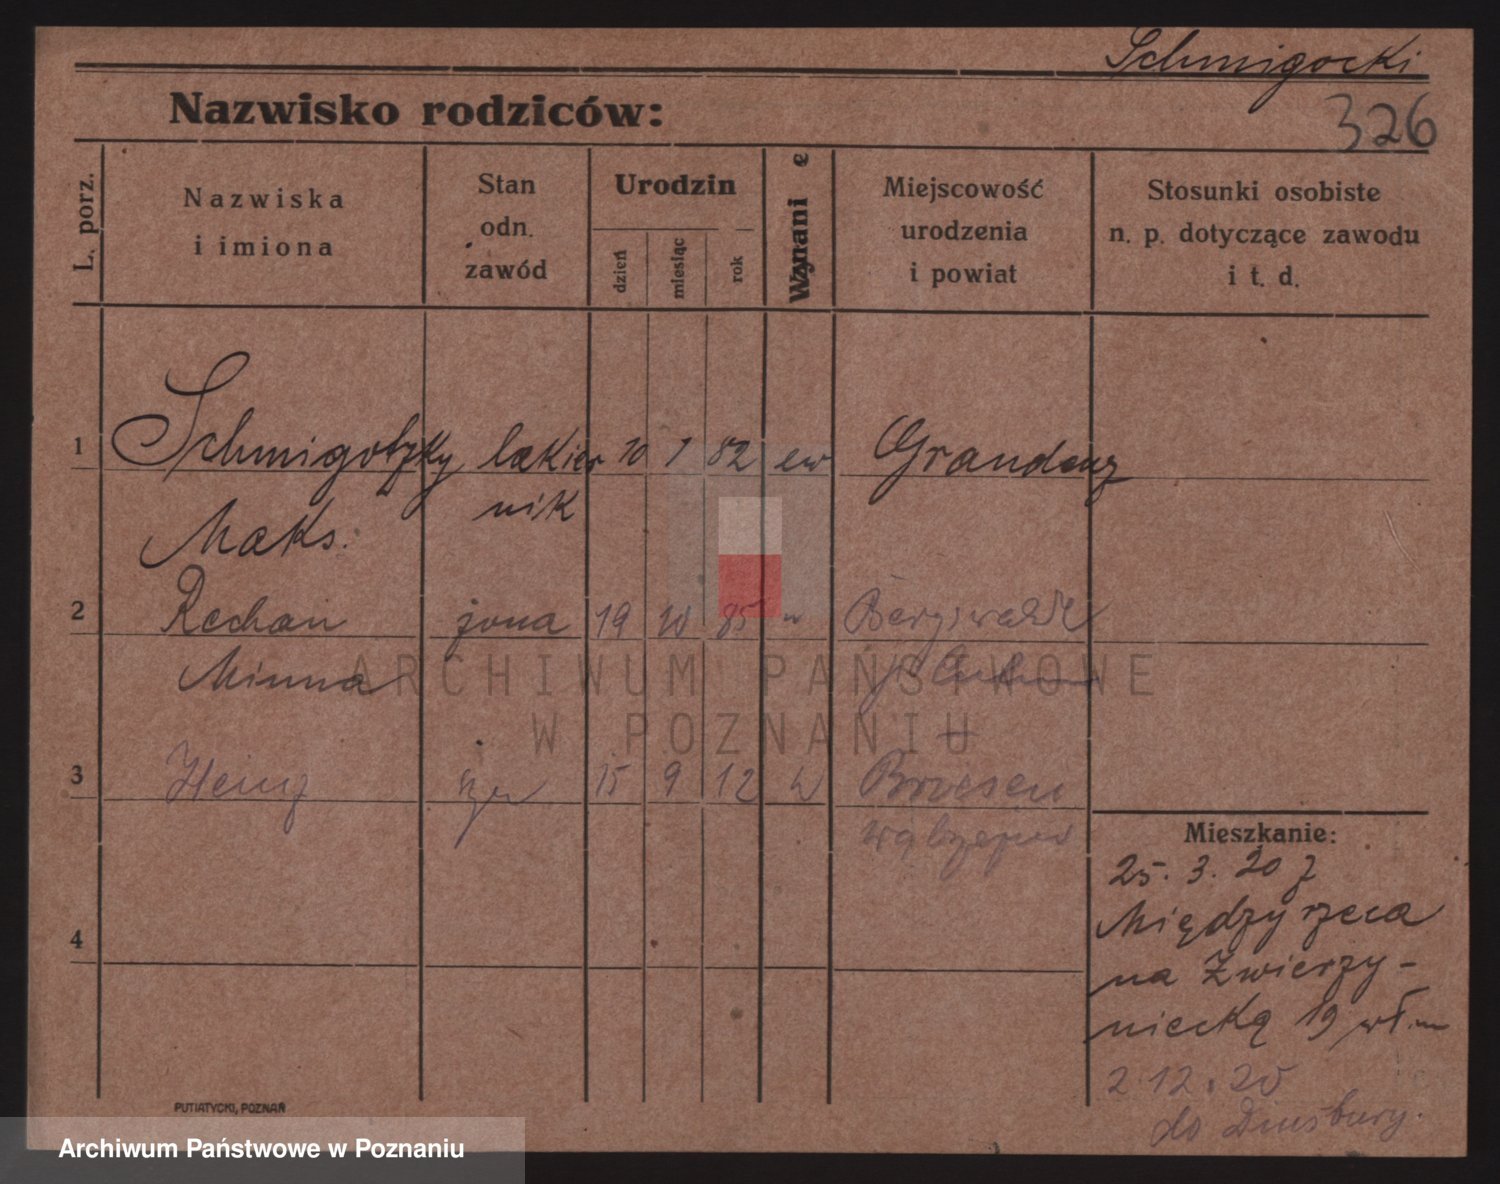 Schmigocki
Nazwisko rodziców:
326
L. porz.
Nazwiska
i imiona
Stan
odn.
zawód
Urodzin
dzień
miesiąc
rok
Wyznani e
Miejscowość
urodzenia
i powiat
Stosunki osobiste
n. p. dotyczące zawodu
i t. d.
1 Schmigotzky lakier 10 1 82 ew Graudenz
Maks. nik
2 Rechan żona 19 10 85 "
Minna
3 Heinz 15 9 12 Briesen
Wąbrzeźno
4
Mieszkanie:
25. 3. 20 z
Międzyrzeca
na Zwierzy-
niecką 19 wł.m
2.12.20
do Duisburg.
PUTIATYCKI, POZNAŃ
ARCHIWUM PAŃSTWOWE
W POZNANIU
Archiwum Państwowe w Poznaniu